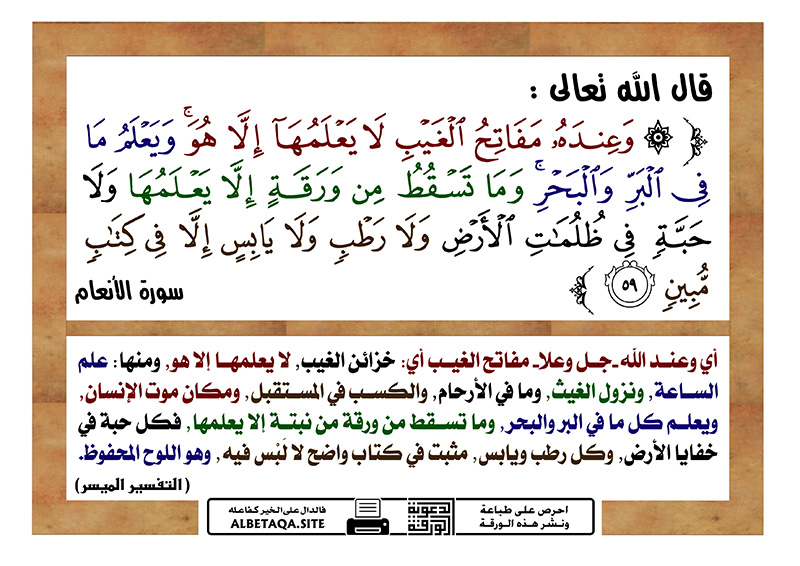 قال الله تعالى :
﴿ ۞ وَعِندَهُۥ مَفَاتِحُ ٱلْغَيْبِ لَا يَعْلَمُهَآ إِلَّا هُوَ ۚ وَيَعْلَمُ مَا
فِى ٱلْبَرِّ وَٱلْبَحْرِ ۚ وَمَا تَسْقُطُ مِن وَرَقَةٍ إِلَّا يَعْلَمُهَا وَلَا
حَبَّةٍ فِى ظُلُمَـٰتِ ٱلْأَرْضِ وَلَا رَطْبٍ وَلَا يَابِسٍ إِلَّا فِى كِتَـٰبٍ
مُّبِينٍ ٥٩ ﴾ سورة الأنعام
أي وعند الله ـجل وعلاـ مفاتح الغيب أي: خزائن الغيب, لا يعلمها إلا هو, ومنها: علم
الساعة, ونزول الغيث, وما في الأرحام, والكسب في المستقبل, ومكان موت الإنسان,
ويعلم كل ما في البر والبحر, وما تسقط من ورقة من نبتة إلا يعلمها, فكل حبة في
خفايا الأرض, وكل رطب ويابس, مثبت في كتاب واضح لا لَبْس فيه, وهو اللوح المحفوظ.
(التفسير الميسر)
احرص على طباعة
ونشر هذه الورقة
الدعوية
الورقة
فالدال على الخير كفاعله
ALBETAQA.SITE